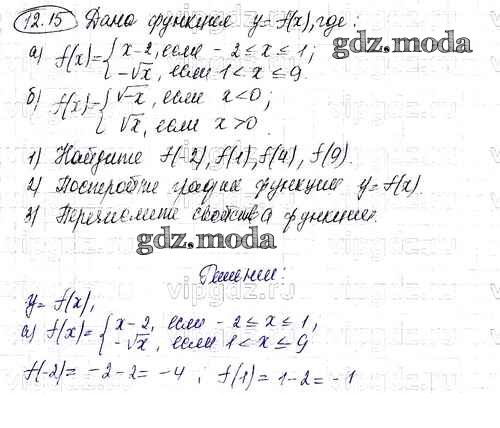 12.15 Дана функция y = f(x), где:
а) f(x) = { x-2, если -2 ≤ x ≤ 1;
-√x, если 1 < x ≤ 9.
gdz.moda
б) f(x) = { √-x, если x < 0;
√x, если x > 0.
1) Найдите f(-2), f(1), f(4), f(9).
2) Постройте график функции y = f(x).
3) Перечислите свойства функции.
gdz.moda
Решение:
y = f(x),
а) f(x) = { x-2, если -2 ≤ x ≤ 1,
-√x, если 1 < x ≤ 9
f(-2) = -2-2 = -4 ; f(1) = 1-2 = -1